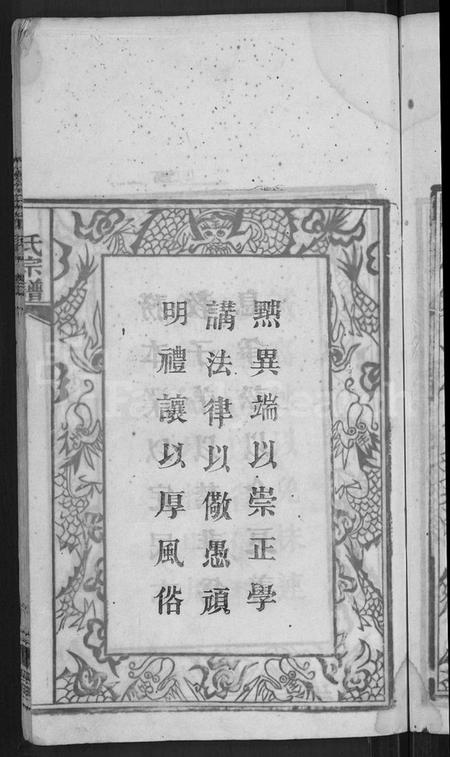 黜異端以崇正學
講法律以儆愚頑
明禮讓以厚風俗
氏宗譜